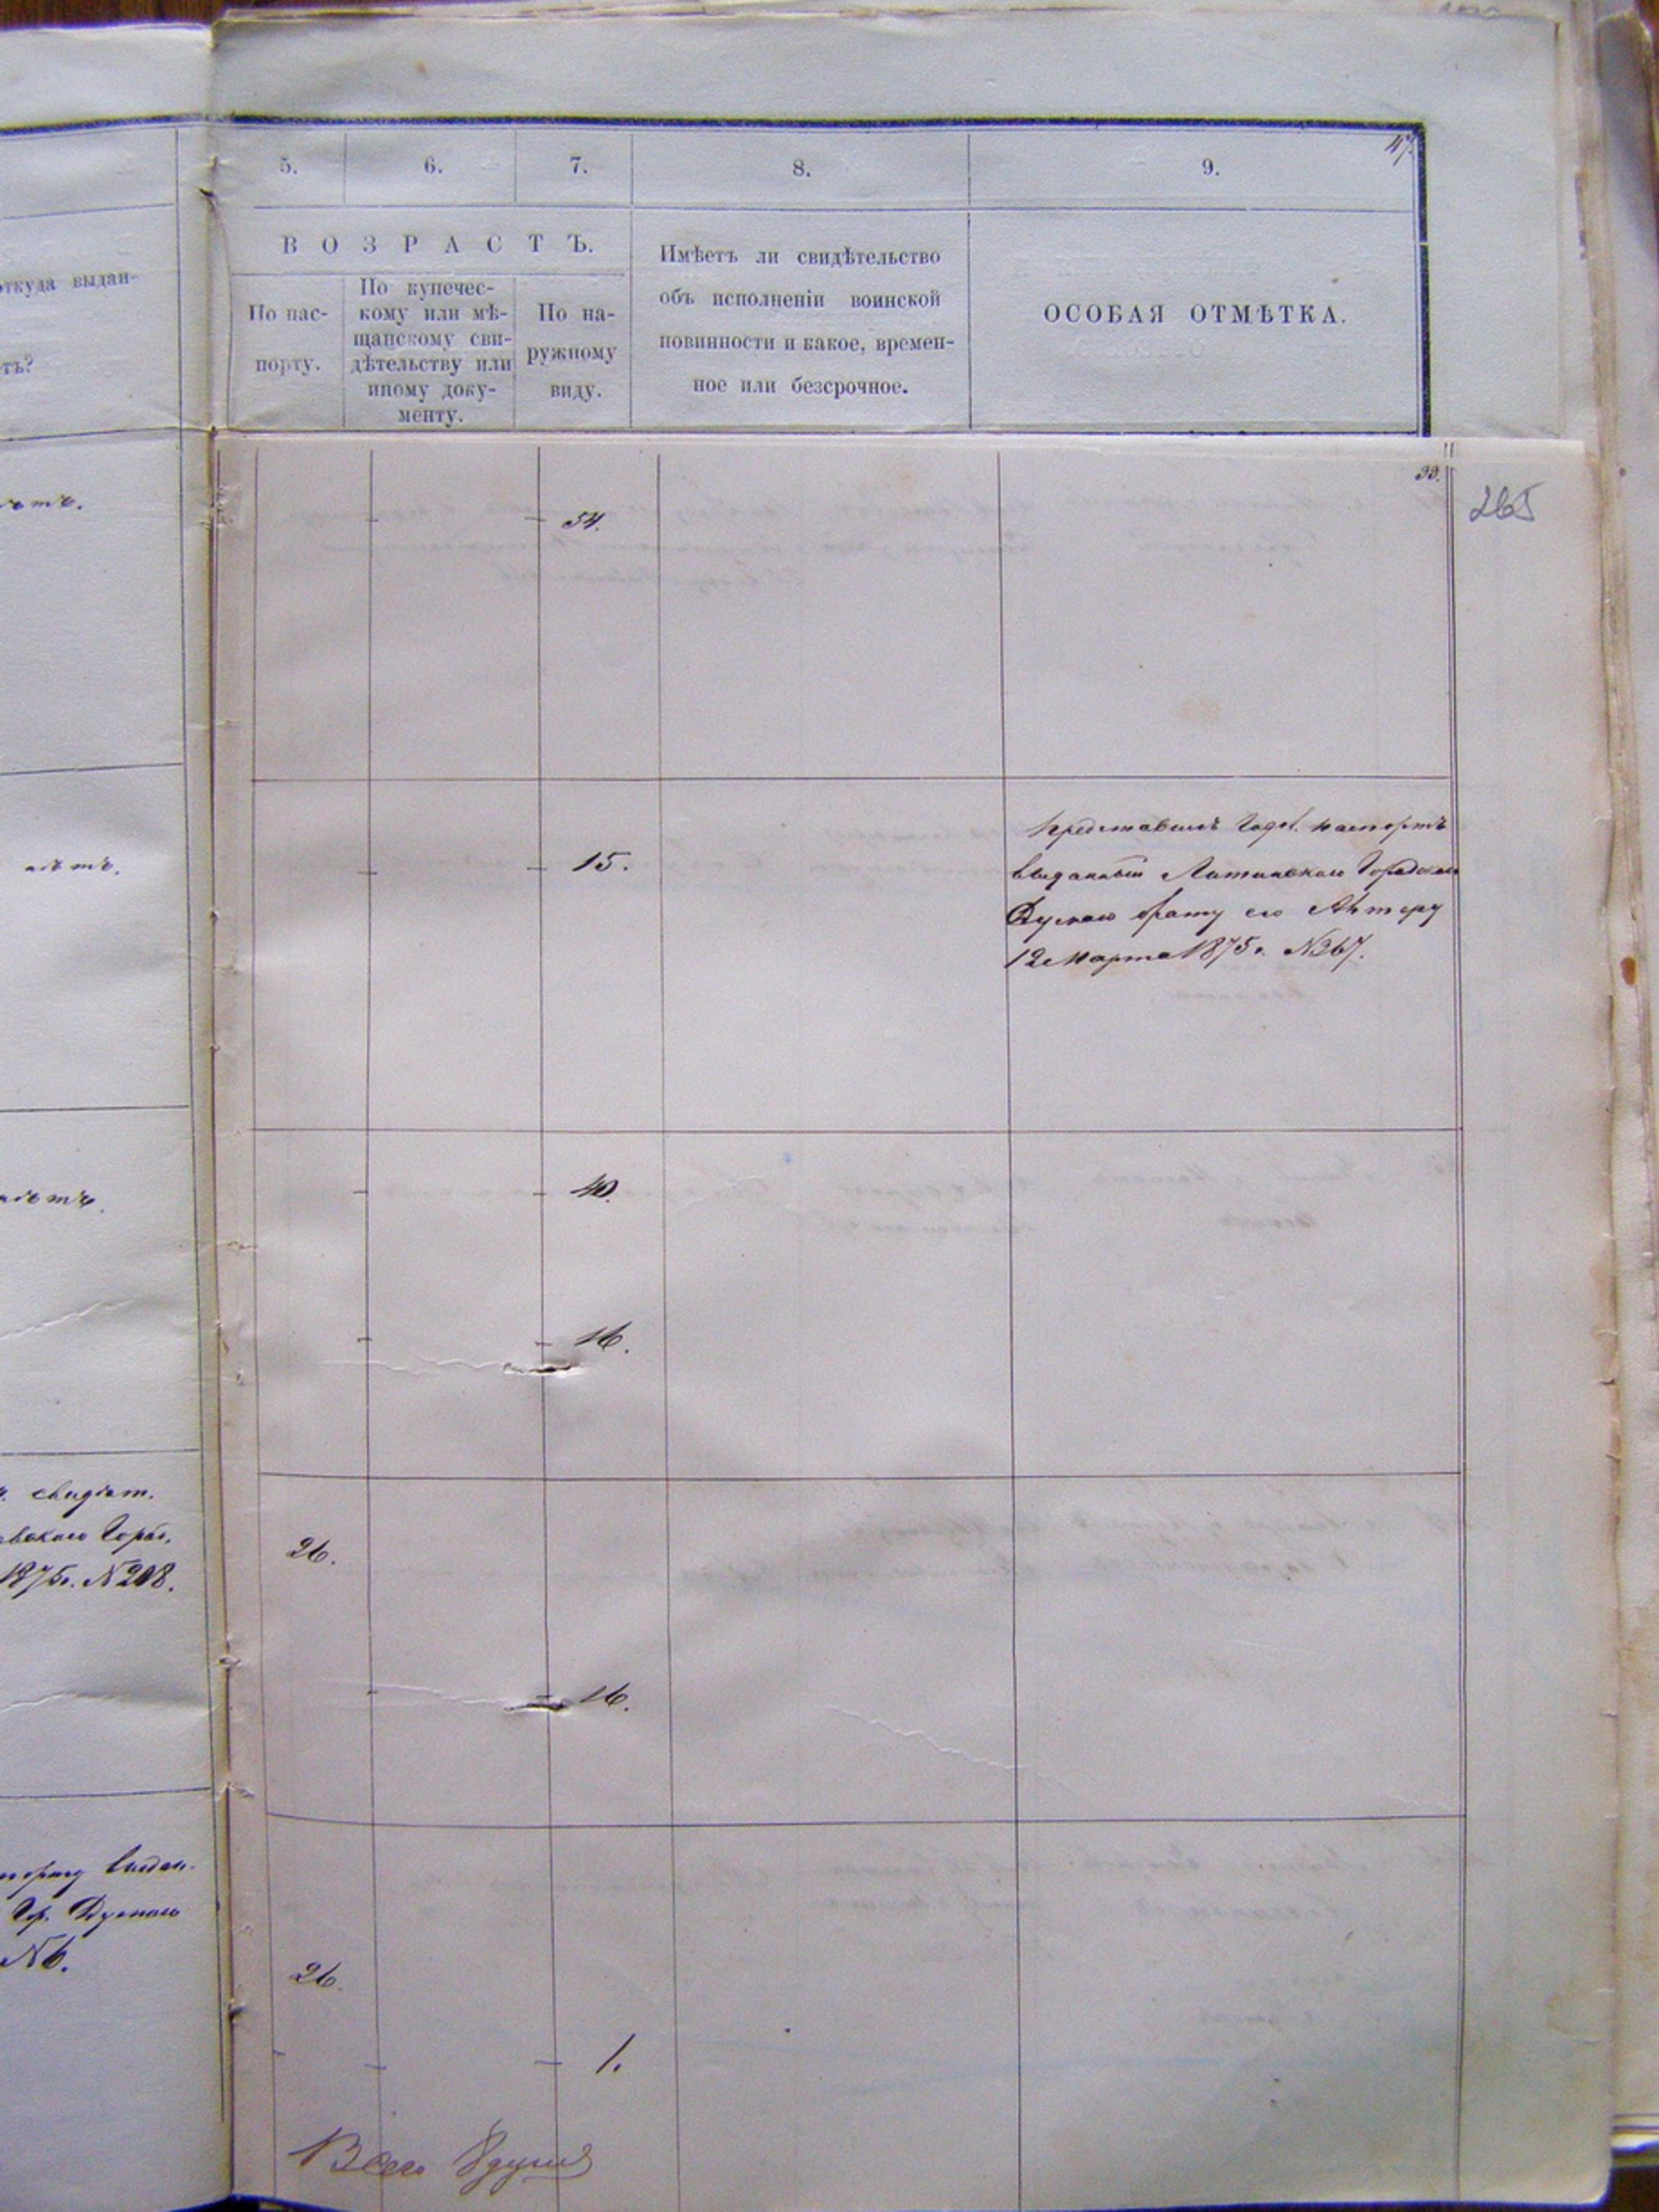 47.
5. 6. 7. 8. 9.
ВОЗРАСТЪ.
откуда выдан-
тъ?
По пас-
порту.
По купечес-
кому или мѣ-
щанскому сви-
дѣтельству или
иному доку-
менту.
По на-
ружному
виду.
Имѣетъ ли свидѣтельство
объ исполненіи воинской
повинности и какое, времен-
ное или безсрочное.
ОСОБАЯ ОТМѢТКА.
265
54.
15.
Представилъ Годов. паспортъ
выданный Литинскою Городскою
Думою брату его
12 Марта 1875 г. №267.
40.
16.
свидѣт.
1875г. №208.
26.
16.
Гор. Думою
№6.
26.
1.
Всего 8 душъ